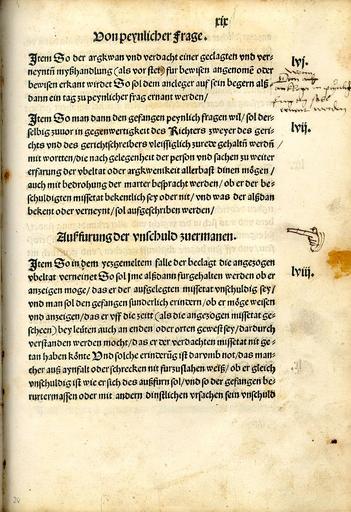 xix
Von peynlicher frage.
Jtem So der argkwan vnd verdacht einer geclagten vnd ver-
neyntñ myßhandlung (als vor stet) für bewisen angenomẽ oder
bewisen erkant wirdet So sol dem ancleger auf sein begern alß
dann ein tag zu peynlicher frag ernant werden/
lvj.
Jtem So man dann den gefangen peynlich fragen wil/sol der-
selbig zuuor in gegenwertigkeit des Richters zweyer des geri-
chts vnd des gerichtschreibers vleissiglich zurede gehaltñ werdñ
mit wortten/die nach gelegenheit der person vnd sachen zu weiter
erfarung der vbeltat oder argkwenikeit allerbaßt dinen mögen/
auch mit bedrohung der marter bespracht werden/ob er der be-
schuldigten missetat bekentlich sey oder nit/vnd was der alßdan
bekent oder verneynt/sol aufgeschriben werden/
lvij.
Auffürung der vnschuld zuermanen.
Jtem So in dem yezgemeltem falle der beclagt die angezogen
vbeltat verneinet So sol jme alßdann furgehalten werden ob er
anzeigen moge/das er der aufgelegten missetat vnschuldig sey/
vnd man sol den gefangen sunderlich erindern/ob er möge weisen
vnd anzeigen/das er vff die zeitt (als die angezogen missetat ge-
scheen) bey leuten auch an enden oder orten gewest sey/dardurch
verstanden werden möcht/das er der verdachten missetat nit ge-
tan haben könte Vnd solche erinderũg ist darvmb not/das man-
cher auß aynfalt oder schrecken nit furzuslahen weiß/ob er gleich
vnschuldig ist wie er sich des außfürn sol/vnd so der gefangen be-
rurtermassen oder mit andern dinstlichen vrsachen sein vnschuld
lviij.